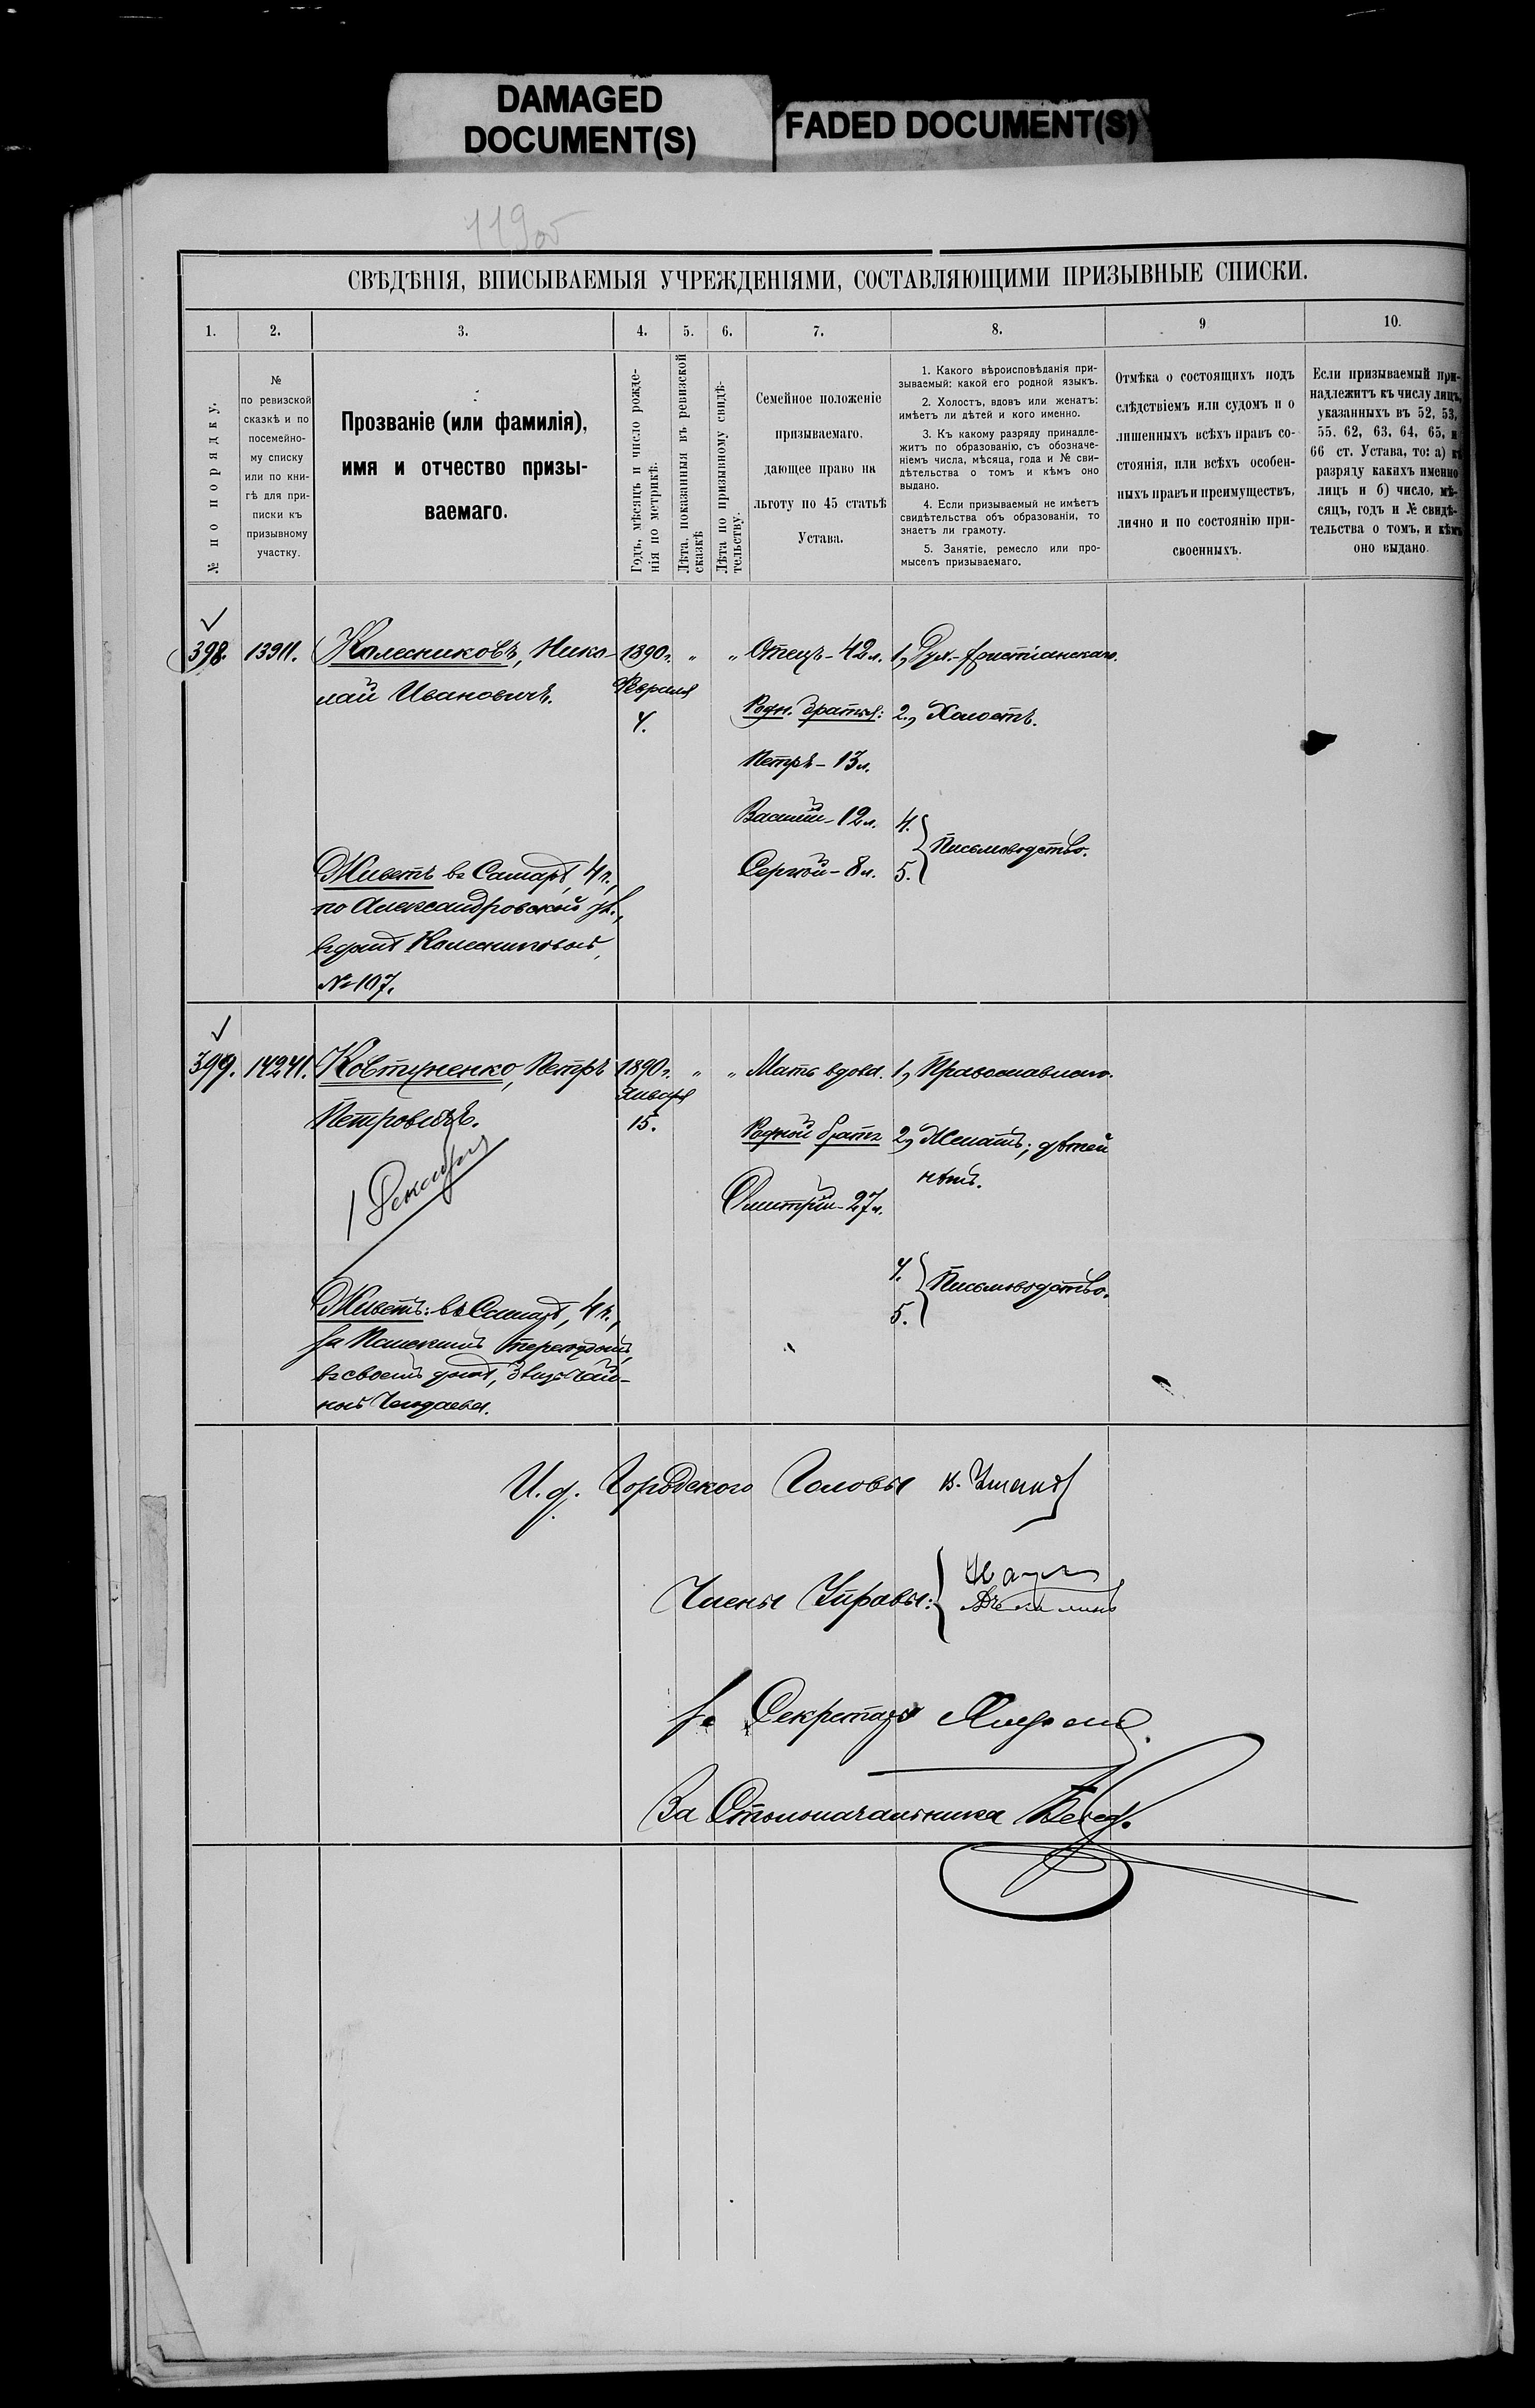 DAMAGED
DOCUMENT(S)
FADED DOCUMENT(S)
119 об
СВѢДѢНІЯ, ВПИСЫВАЕМЫЯ УЧРЕЖДЕНІЯМИ, СОСТАВЛЯЮЩИМИ ПРИЗЫВНЫЕ СПИСКИ.
1.
2.
3.
4.
5.
6.
7.
8.
9
10.
№ по порядку.
№
по ревизской
сказкѣ и по
посемейно-
му списку
или по кни-
гѣ для при-
писки къ
призывному
участку.
Прозваніе (или фамилія),
имя и отчество призы-
ваемаго.
Годъ, мѣсяцъ и число рожде-
нія по метрикѣ.
Лѣта, показанныя въ ревизской
сказкѣ
Лѣта по призывному свидѣ-
тельству.
Семейное положеніе
призываемаго.
дающее право на
льготу по 45 статьѣ
Устава.
1. Какого вѣроисповѣданія при-
зываемый: какой его родной языкъ.
2. Холостъ, вдовъ или женатъ:
имѣетъ ли дѣтей и кого именно.
3. Къ какому разряду принадле-
житъ по образованію, съ обозначе-
ніемъ числа, мѣсяца, года и № сви-
дѣтельства о томъ и кѣмъ оно
выдано.
4. Если призываемый не имѣетъ
свидѣтельства объ образованіи, то
знаетъ ли грамоту.
5. Занятіе, ремесло или про-
мыселъ призываемаго.
Отмѣка о состоящихъ подъ
слѣдствіемъ или судомъ и о
лишенныхъ всѣхъ правъ со-
стоянія, или всѣхъ особен-
ныхъ правъ и преимуществъ,
лично и по состоянію при-
своенныхъ.
Если призываемый при-
надлежитъ къ числу лицъ,
указанныхъ въ 52, 53,
55, 62, 63, 64, 65, и
66 ст. Устава, то: а) къ
разряду какихъ именно
лицъ и б) число, мѣ-
сяцъ, годъ и № свидѣ-
тельства о томъ, и кѣмъ
оно выдано.
398. 13911. Колесниковъ, Нико- 1890 г. " " Отецъ - 42 л. 1, Дух.-христіанскаго.
лай Ивановичъ. Февраля
4. Родн. братья: 2., Холостъ.
Петръ - 13 л.
Василій - 12 л. 4.
Письмоводство.
Живетъ въ Самарѣ, 4 ч., Сергѣй - 8 л. 5.
по Александровской ул.,
въ домѣ Колесниковой,
№ 107.
399. 14241. Ковтуненко, Петръ 1890 г. " " Мать вдова. 1, Православнаго.
Января
Петровичъ. 15. Родной братъ 2, Женатъ; дѣтей
нѣтъ.
Дмитрій - 27 л.
4.
Письмоводство.
5.
Живетъ: въ Самарѣ, 4 ч.,
въ своемъ домѣ,
И. д. Городского Головы
Члены Управы:
Секретарь
За Столоначальника